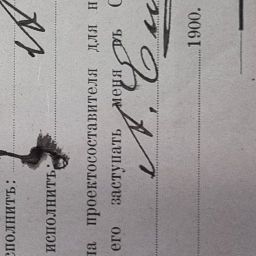 сполнитъ:
исполнитъ:
на проектосоставителя для н
его заступать меня въ С
1900.